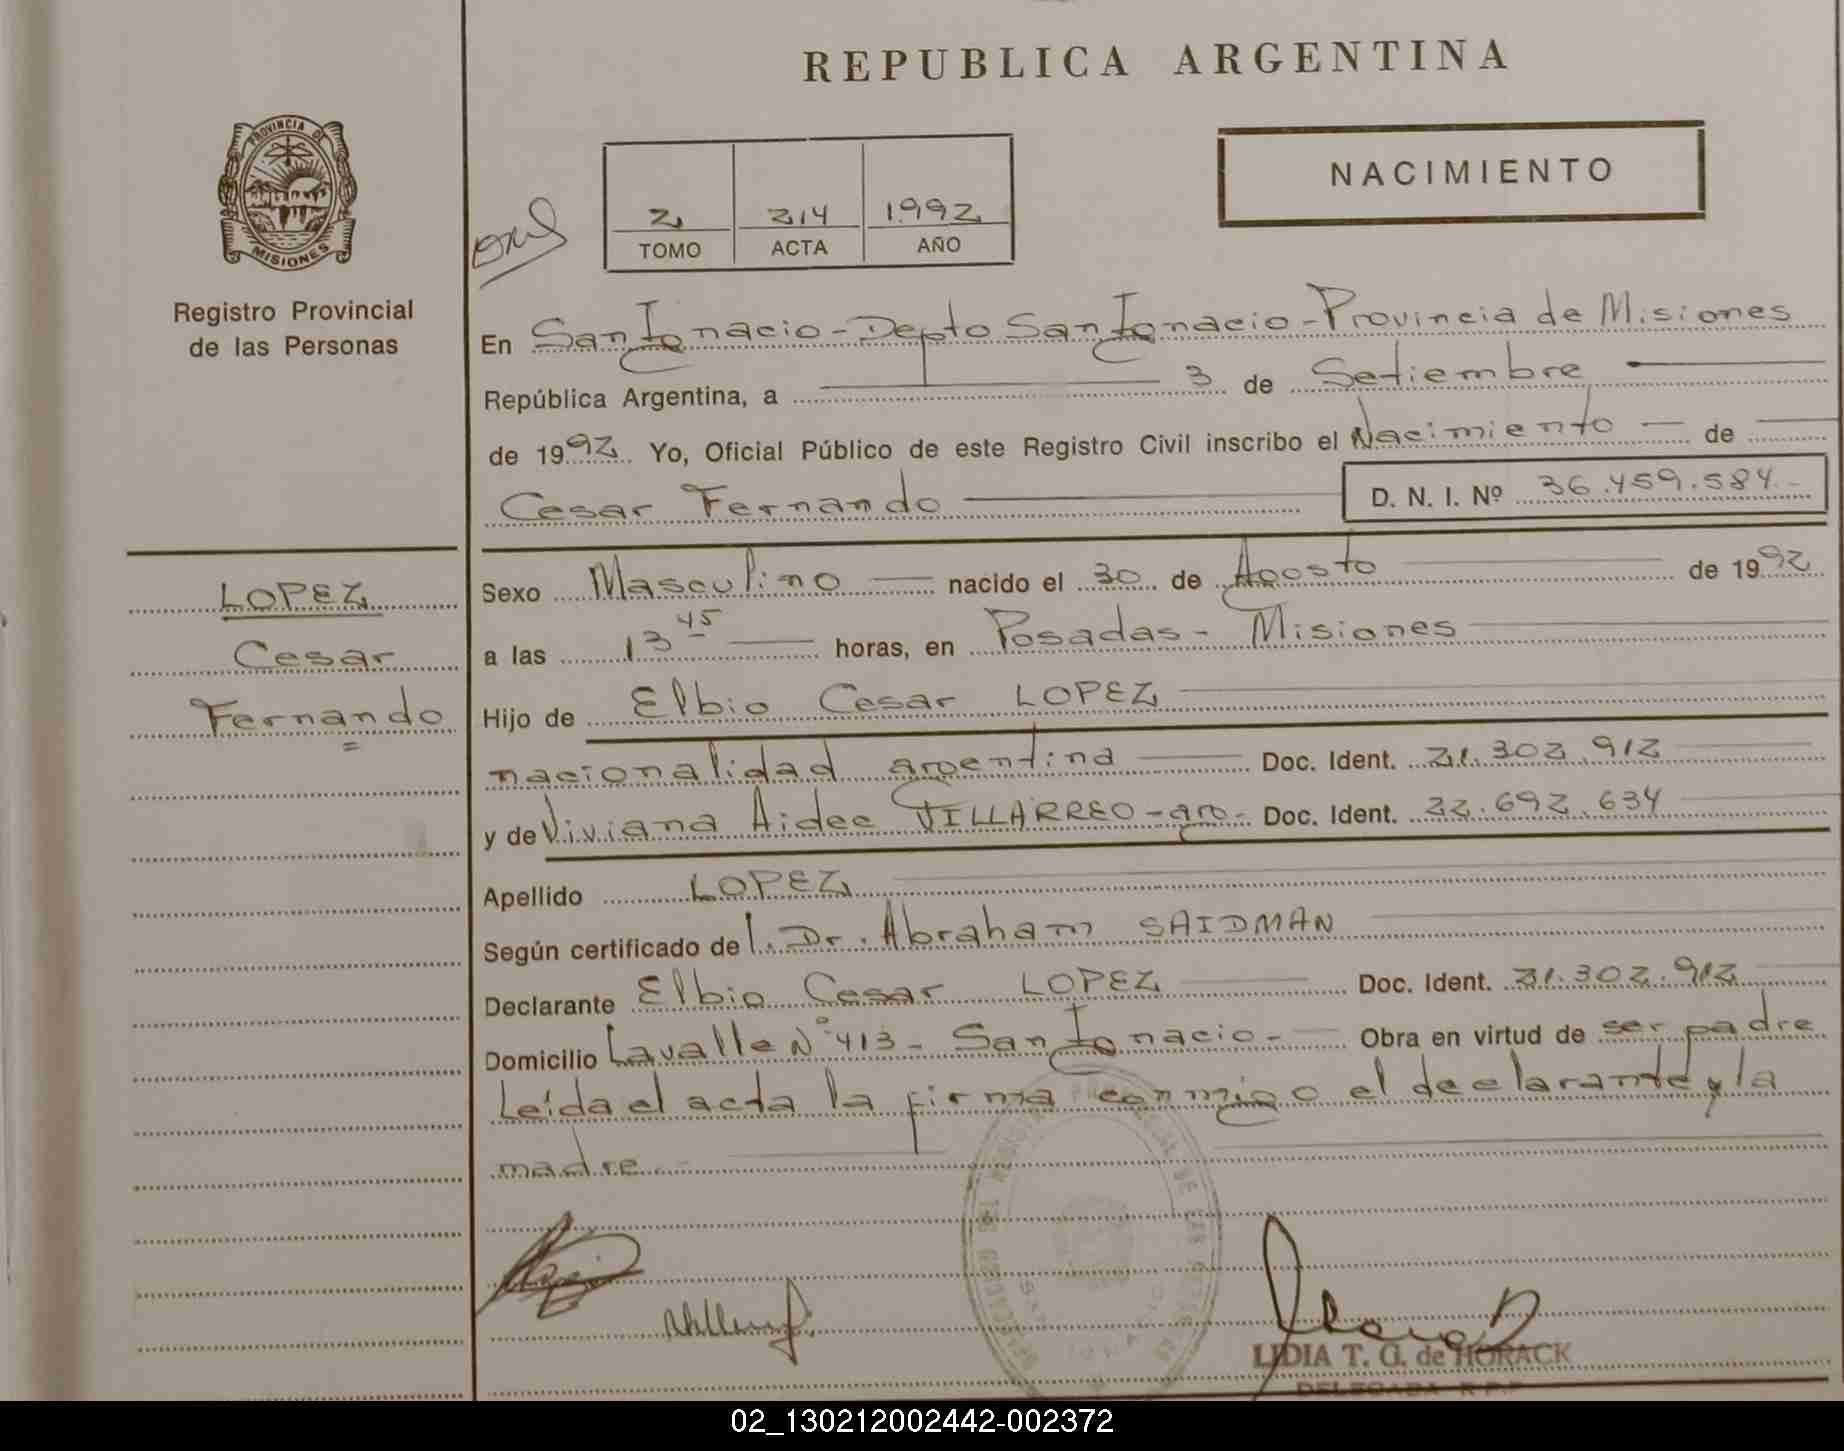 REPUBLICA ARGENTINA
PROVINCIA DE
MISIONES
Registro Provincial
de las Personas
2 214 1992
TOMO ACTA AÑO
NACIMIENTO
En San Ignacio - Depto San Ignacio - Provincia de Misiones
República Argentina, a 3 de Setiembre
de 1992 Yo, Oficial Público de este Registro Civil inscribo el Nacimiento - de
Cesar Fernando D. N. I. Nº 36.459.584.-
LOPEZ
Cesar
Fernando
Sexo Masculino nacido el 30 de Agosto de 1992
a las 13 45 horas, en Posadas - Misiones
Hijo de Elbio Cesar LOPEZ
nacionalidad argentina Doc. Ident. 21.302.912
y de Viviana Aidee VILLARREO - arg - Doc. Ident. 22.692.634
Apellido LOPEZ
Según certificado del Dr. Abraham SAIDMAN
Declarante Elbio Cesar LOPEZ Doc. Ident. 21.302.912
Domicilio Lavalle Nº 413 - San Ignacio - Obra en virtud de ser padre
Leída el acta la firma conmigo el declarante y la
madre.-
LIDIA T. G. de HORACK
DELEGADA R.P.P
02_130212002442-002372